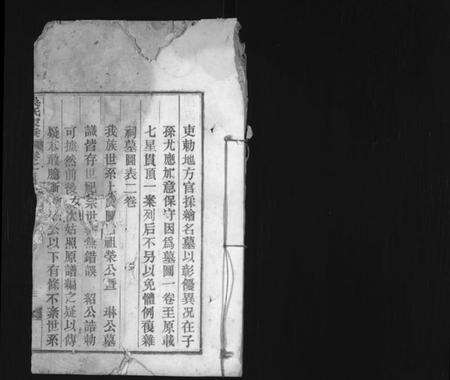 吏勅地方官採繪名墓以彰優異况在子
孫尤應加意保守因爲墓圖一卷至原載
七星貫頂一案列后不另以免體例復雜
祠墓圖表二卷
我族世系上 祖榮公曁 琳公墓
誠舊存世紀宗世 無錯誤 紹公誥勅
可據然前後 次姑照原譜編之疑以傳
疑不敢臆 公以下有條不紊世系